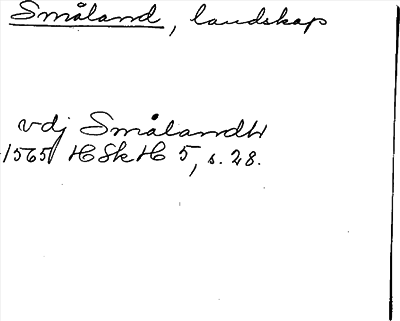 Småland, landskap
vdj Smålandh
1565 HSkH 5, s. 28.